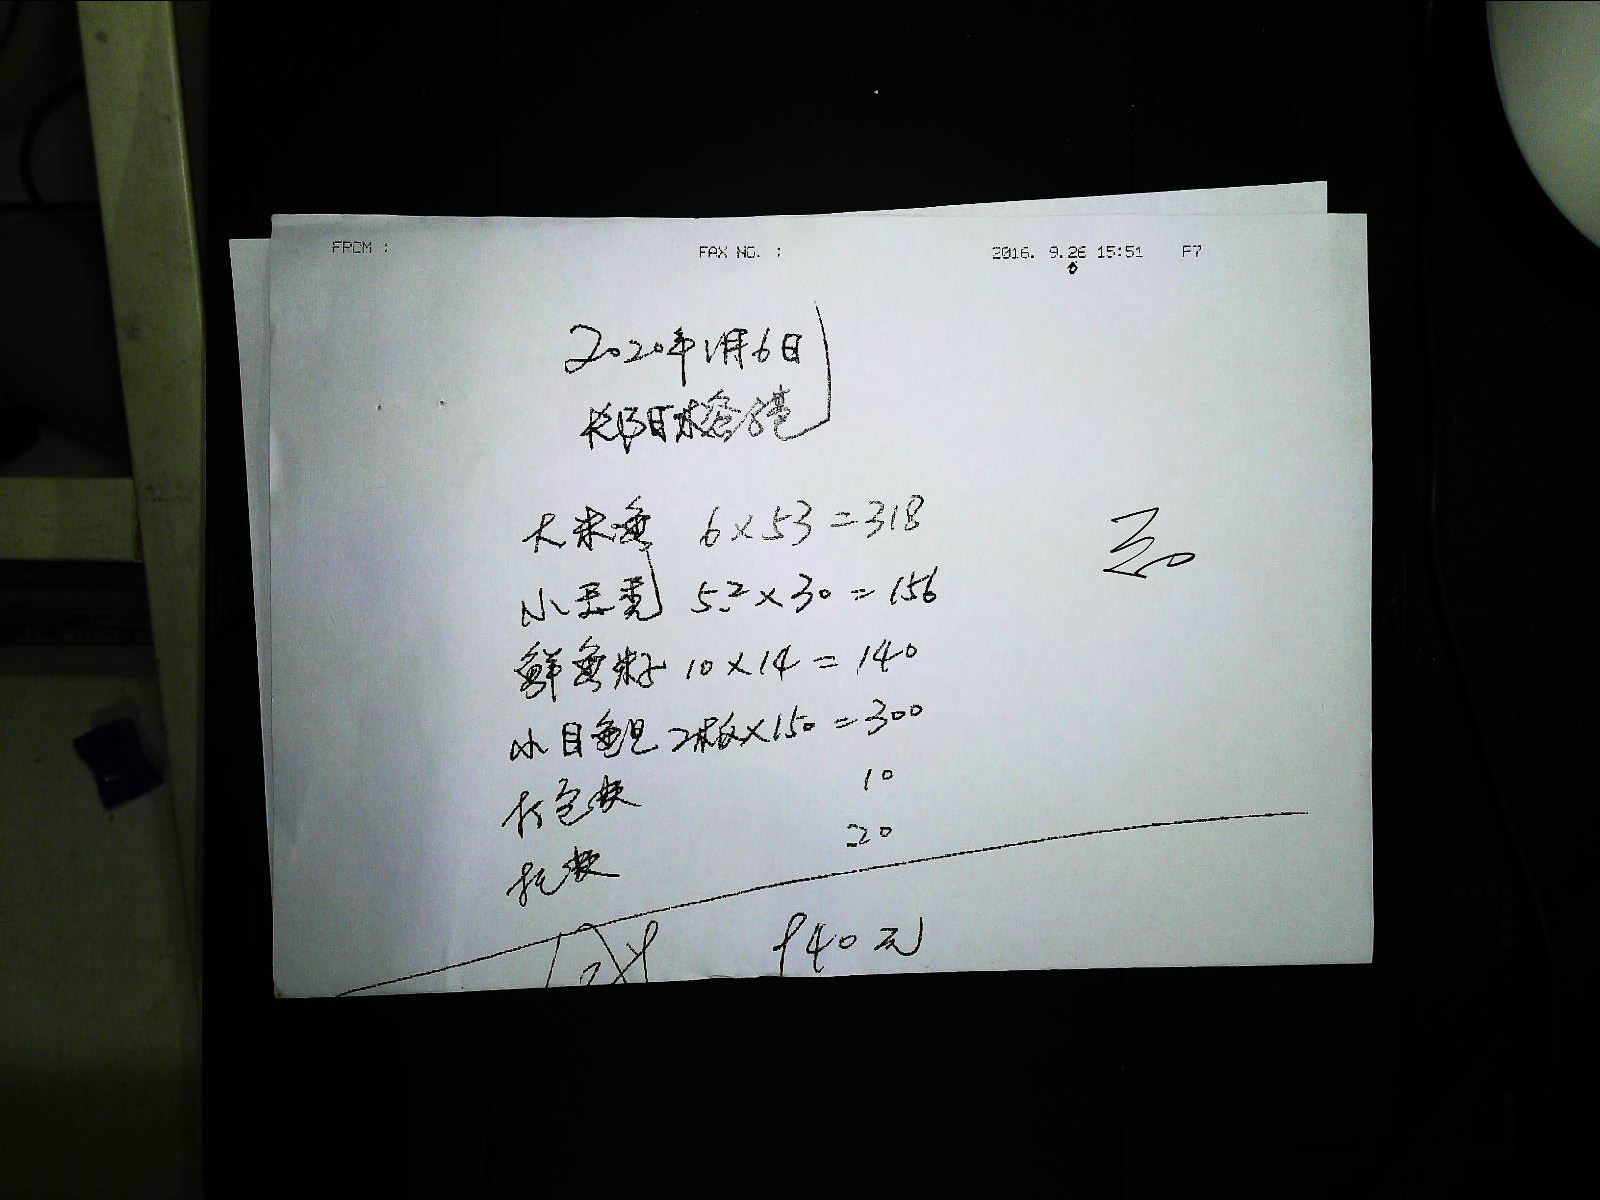 FROM :
FAX NO. :
2016. 9.26 15:51 P7
2020年1月6日
大米鱼 6×53=318
小 5.2×30=156
鲜鱼籽 10×14=140
小目鱼 2板×150=300
打包费 10
托费 20
940元